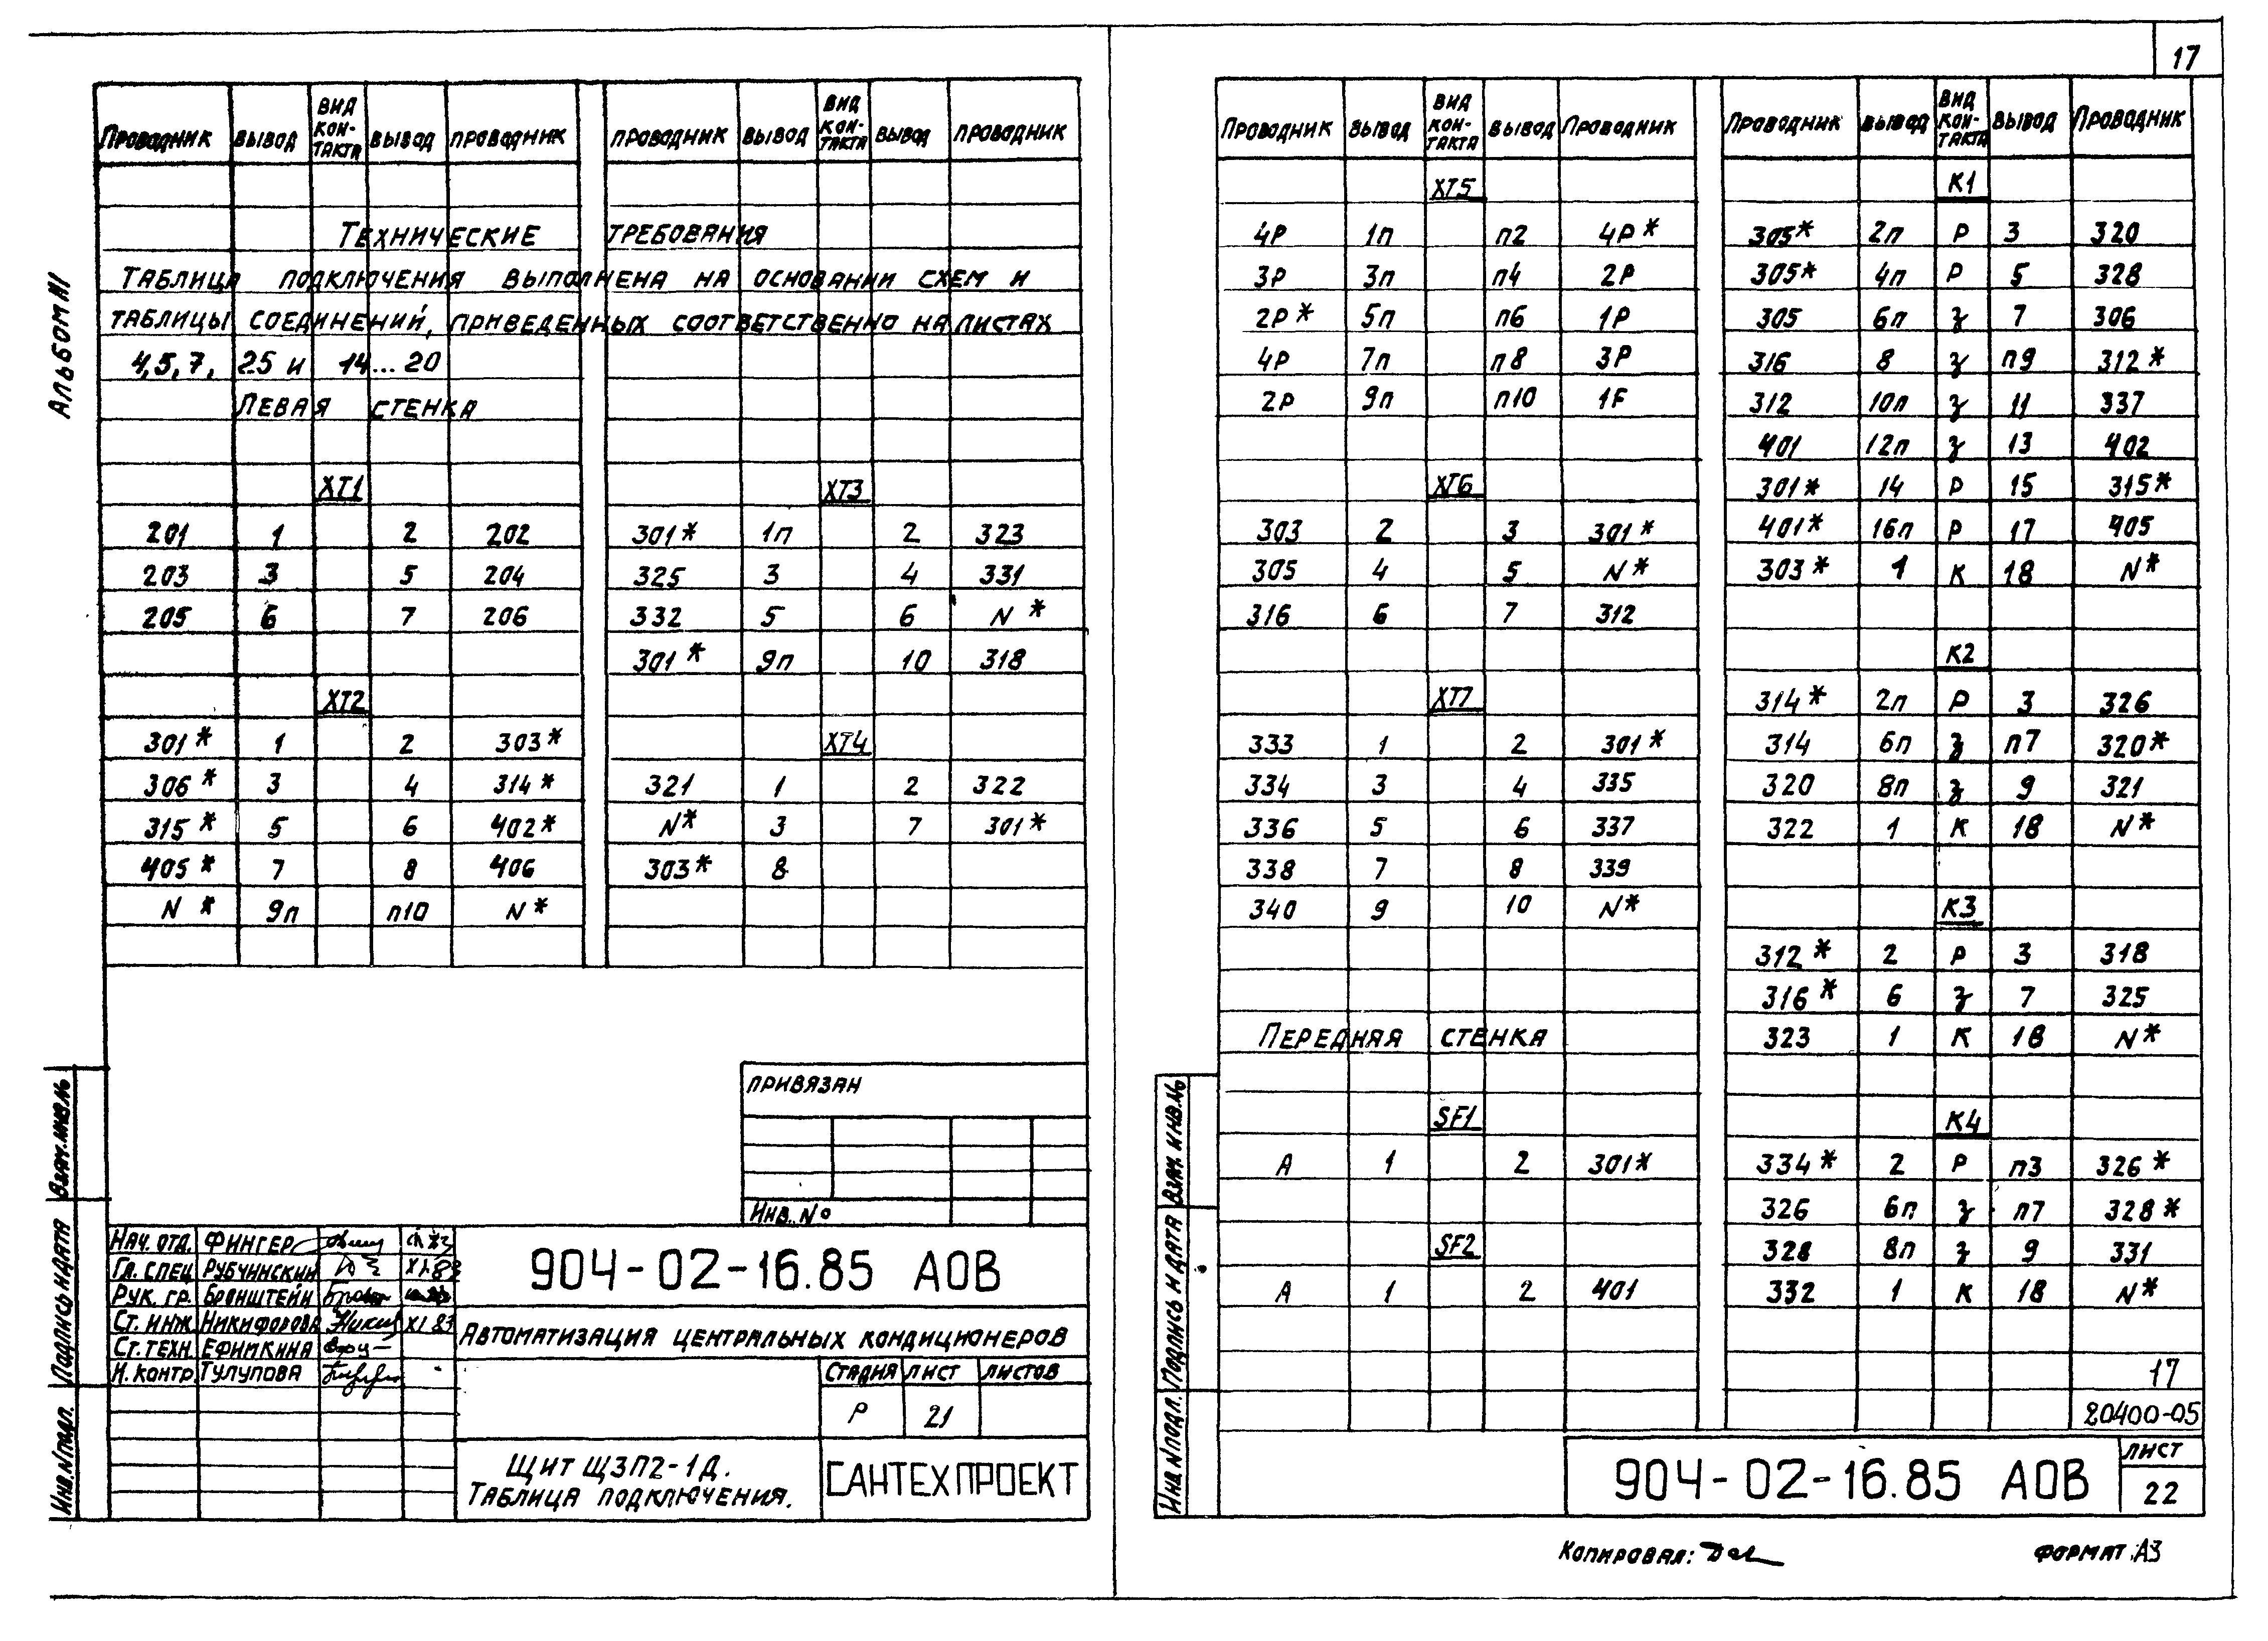 17
Альбом VI
Проводник вывод вид кон-такта вывод проводник проводник вывод вид кон-такта вывод проводник
Технические требования
Таблица подключения выполнена на основании схем и
таблицы соединений, приведенных соответственно на листах
4,5,7, 25 и 14...20
Левая стенка
XT1 XT3
201 1 2 202 301* 1п 2 323
203 3 5 204 325 3 4 331
205 6 7 206 332 5 6 N*
301* 9п 10 318
XT2
301* 1 2 303* XT4
306* 3 4 314* 321 1 2 322
315* 5 6 402* N* 3 7 301*
405* 7 8 406 303* 8
N* 9п п10 N*
привязан
Инв. №
Нач. отд. Фингер
Гл. спец Рубчинский XI-83
Рук. гр. Бронштейн
Ст. инж. Никифорова XI 83
Ст. техн. Ефимкина
Н. контр Тулупова
904-02-16.85 АОВ
Автоматизация центральных кондиционеров
Стадия лист листов
Р 21
Щит ЩЗП2-1Д.
Таблица подключения.
САНТЕХПРОЕКТ
Инв.№подл. Подпись и дата Взам.инв.№
Проводник вывод вид кон-такта вывод Проводник Проводник вывод вид кон-такта вывод Проводник
XT5 K1
4Р 1п п2 4Р* 305* 2п Р 3 320
3Р 3п п4 2Р 305* 4п Р 5 328
2Р* 5п п6 1Р 305 6п з 7 306
4Р 7п п8 3Р 316 8 з п9 312*
2Р 9п п10 1F 312 10п з 11 337
401 12п з 13 402
XT6 301* 14 Р 15 315*
303 2 3 301* 401* 16п Р 17 405
305 4 5 N* 303* 1 К 18 N*
316 6 7 312
K2
XT7 314* 2п Р 3 326
333 1 2 301* 314 6п з п7 320*
334 3 4 335 320 8п з 9 321
336 5 6 337 322 1 К 18 N*
338 7 8 339
340 9 10 N* K3
312* 2 Р 3 318
316* 6 з 7 325
Передняя стенка 323 1 К 18 N*
SF1 K4
А 1 2 301* 334* 2 Р п3 326*
326 6п з п7 328*
SF2 328 8п з 9 331
А 1 2 401 332 1 К 18 N*
17
20400-05
Инв.№подл. Подпись и дата Взам. инв.№
904-02-16.85 АОВ
лист
22
Копировал:
Формат А3